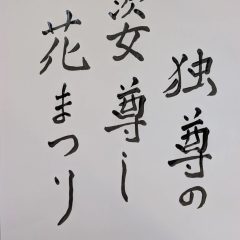 独尊の
姿尊し
花まつり